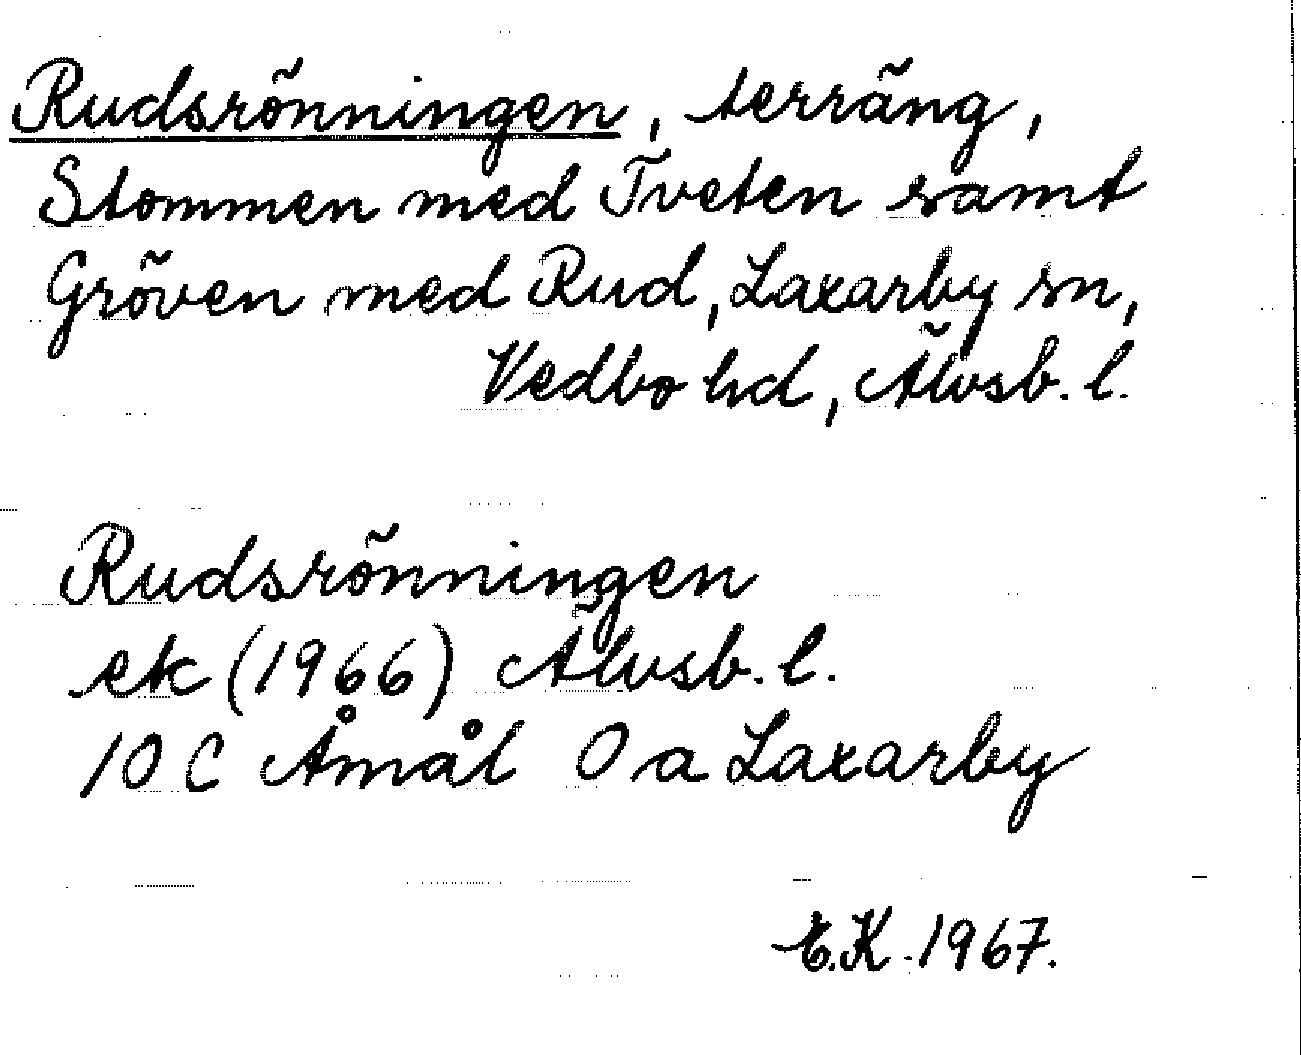 Rudsrönningen, terräng,
Stommen med Tveten samt
Gröven med Rud, Laxarby sn,
Vedbo hd, Älvsb. l.
Rudsrönningen
ek (1966) Älvsb. l.
10 C Åmål O a Laxarby
E.K. 1967.